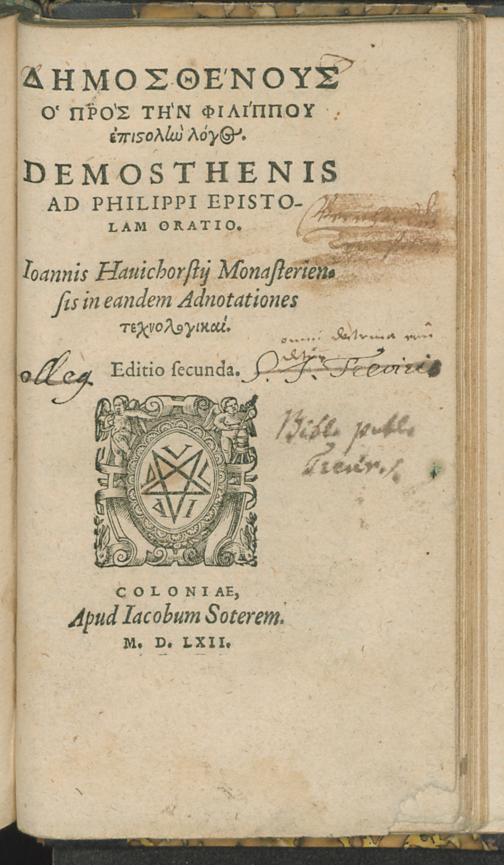 ΔΗΜΟΣΘΕΝΟΥΣ
Ο῾ ΠΡΟ῾Σ ΤΗ῾Ν ΦΙΛΙΠΠΟΥ
ἐπιςολὼ λόγος.
DEMOSTHENIS
AD PHILIPPI EPISTO-
LAM ORATIO.
Ioannis Hauichorſtij Monaſterien-
ſis in eandem Adnotationes
τεχνολογικαί.
Editio secunda.
olleg S. J. Treviris
Bibl. publ.
Trevir.
COLONIAE,
Apud Iacobum Soterem.
M. D. LXII.